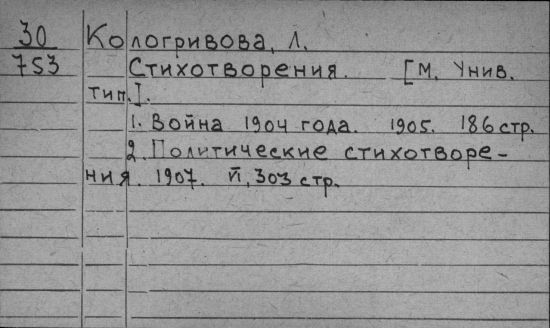 30 Кологривова, Л.
753 Стихотворения. [М. Унив.
тип.].
1. Война 1904 года. 1905. 186 стр.
2. Политические стихотворе-
ния. 1907. II, 303 стр.